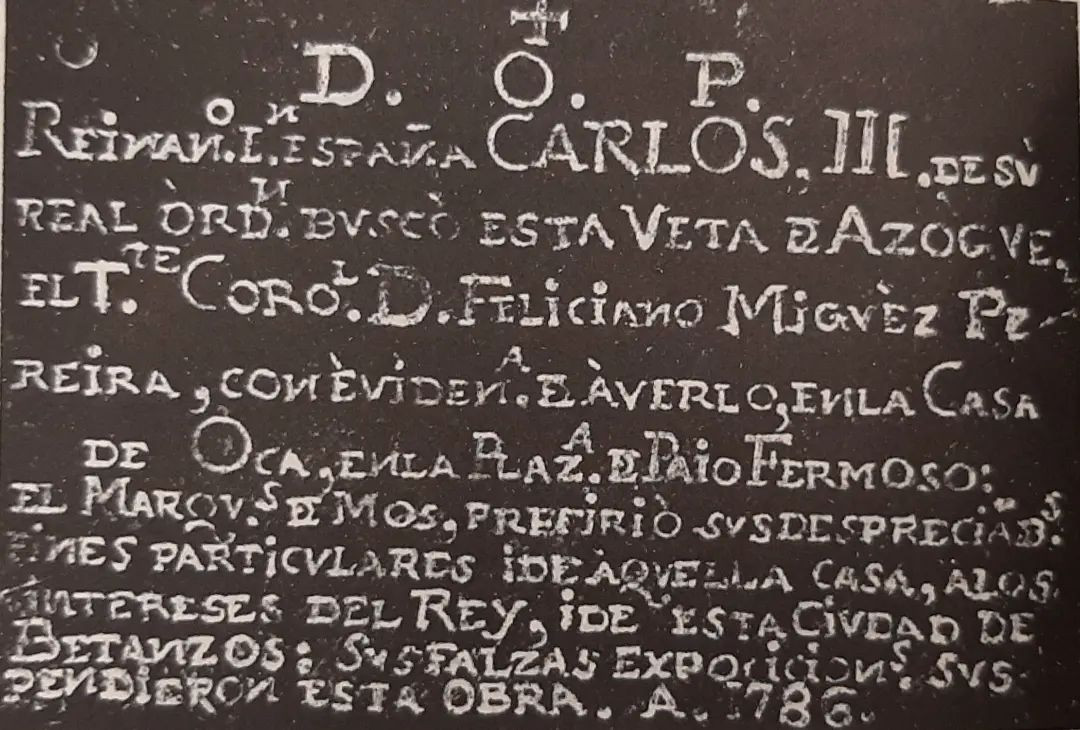 D. O. P.
REINAN.ᴼ I.ᴺ ESPAÑA CARLOS. III. DE SÙ
REAL ÒRD.ᴺ BVSCÒ ESTA VETA DE AZOGVE,
EL T.ᵀᴱ CORO.ᴸ D. FELICIANO MIGVÈZ PE-
REIRA, CON ÈVIDEN.ᴬ DE ÀVERLO, ENLA CASA
DE OCA, ENLA PLAZ.ᴬ DE PAIO FERMOSO:
EL MARQV.ˢ DE MOS, PREFIRIÒ SVS DESPRECIAD.ˢ
FINES PARTICVLARES IDE ÀQVELLA CASA, ALOS
INTERESES DEL REY, IDE ESTA CIVDAD DE
BETANZOS: SVS FALZAS EXPOCICION.ˢ SVS
PENDIERON ESTA OBRA. A. 1786.